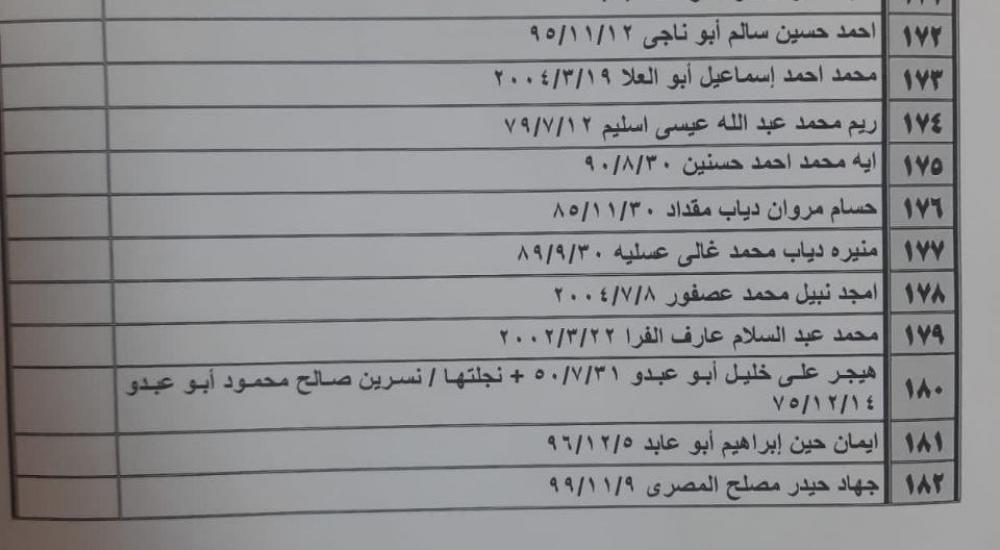 ١٧٢ احمد حسين سالم أبو ناجى ٩٥/١١/١٢
١٧٣ محمد احمد إسماعيل أبو العلا ٢٠٠٤/٣/١٩
١٧٤ ريم محمد عبد الله عيسى اسليم ٧٩/٧/١٢
١٧٥ ايه محمد احمد حسنين ٩٠/٨/٣٠
١٧٦ حسام مروان دياب مقداد ٨٥/١١/٣٠
١٧٧ منيره دياب محمد غالى عسليه ٨٩/٩/٣٠
١٧٨ امجد نبيل محمد عصفور ٢٠٠٤/٧/٨
١٧٩ محمد عبد السلام عارف الفرا ٢٠٠٢/٣/٢٢
١٨٠ هيجر على خليل أبو عبدو ٥٠/٧/٣١ + نجلتها / نسرين صالح محمود أبو عبدو
٧٥/١٢/١٤
١٨١ ايمان حين إبراهيم أبو عابد ٩٦/١٢/٥
١٨٢ جهاد حيدر مصلح المصرى ٩٩/١١/٩